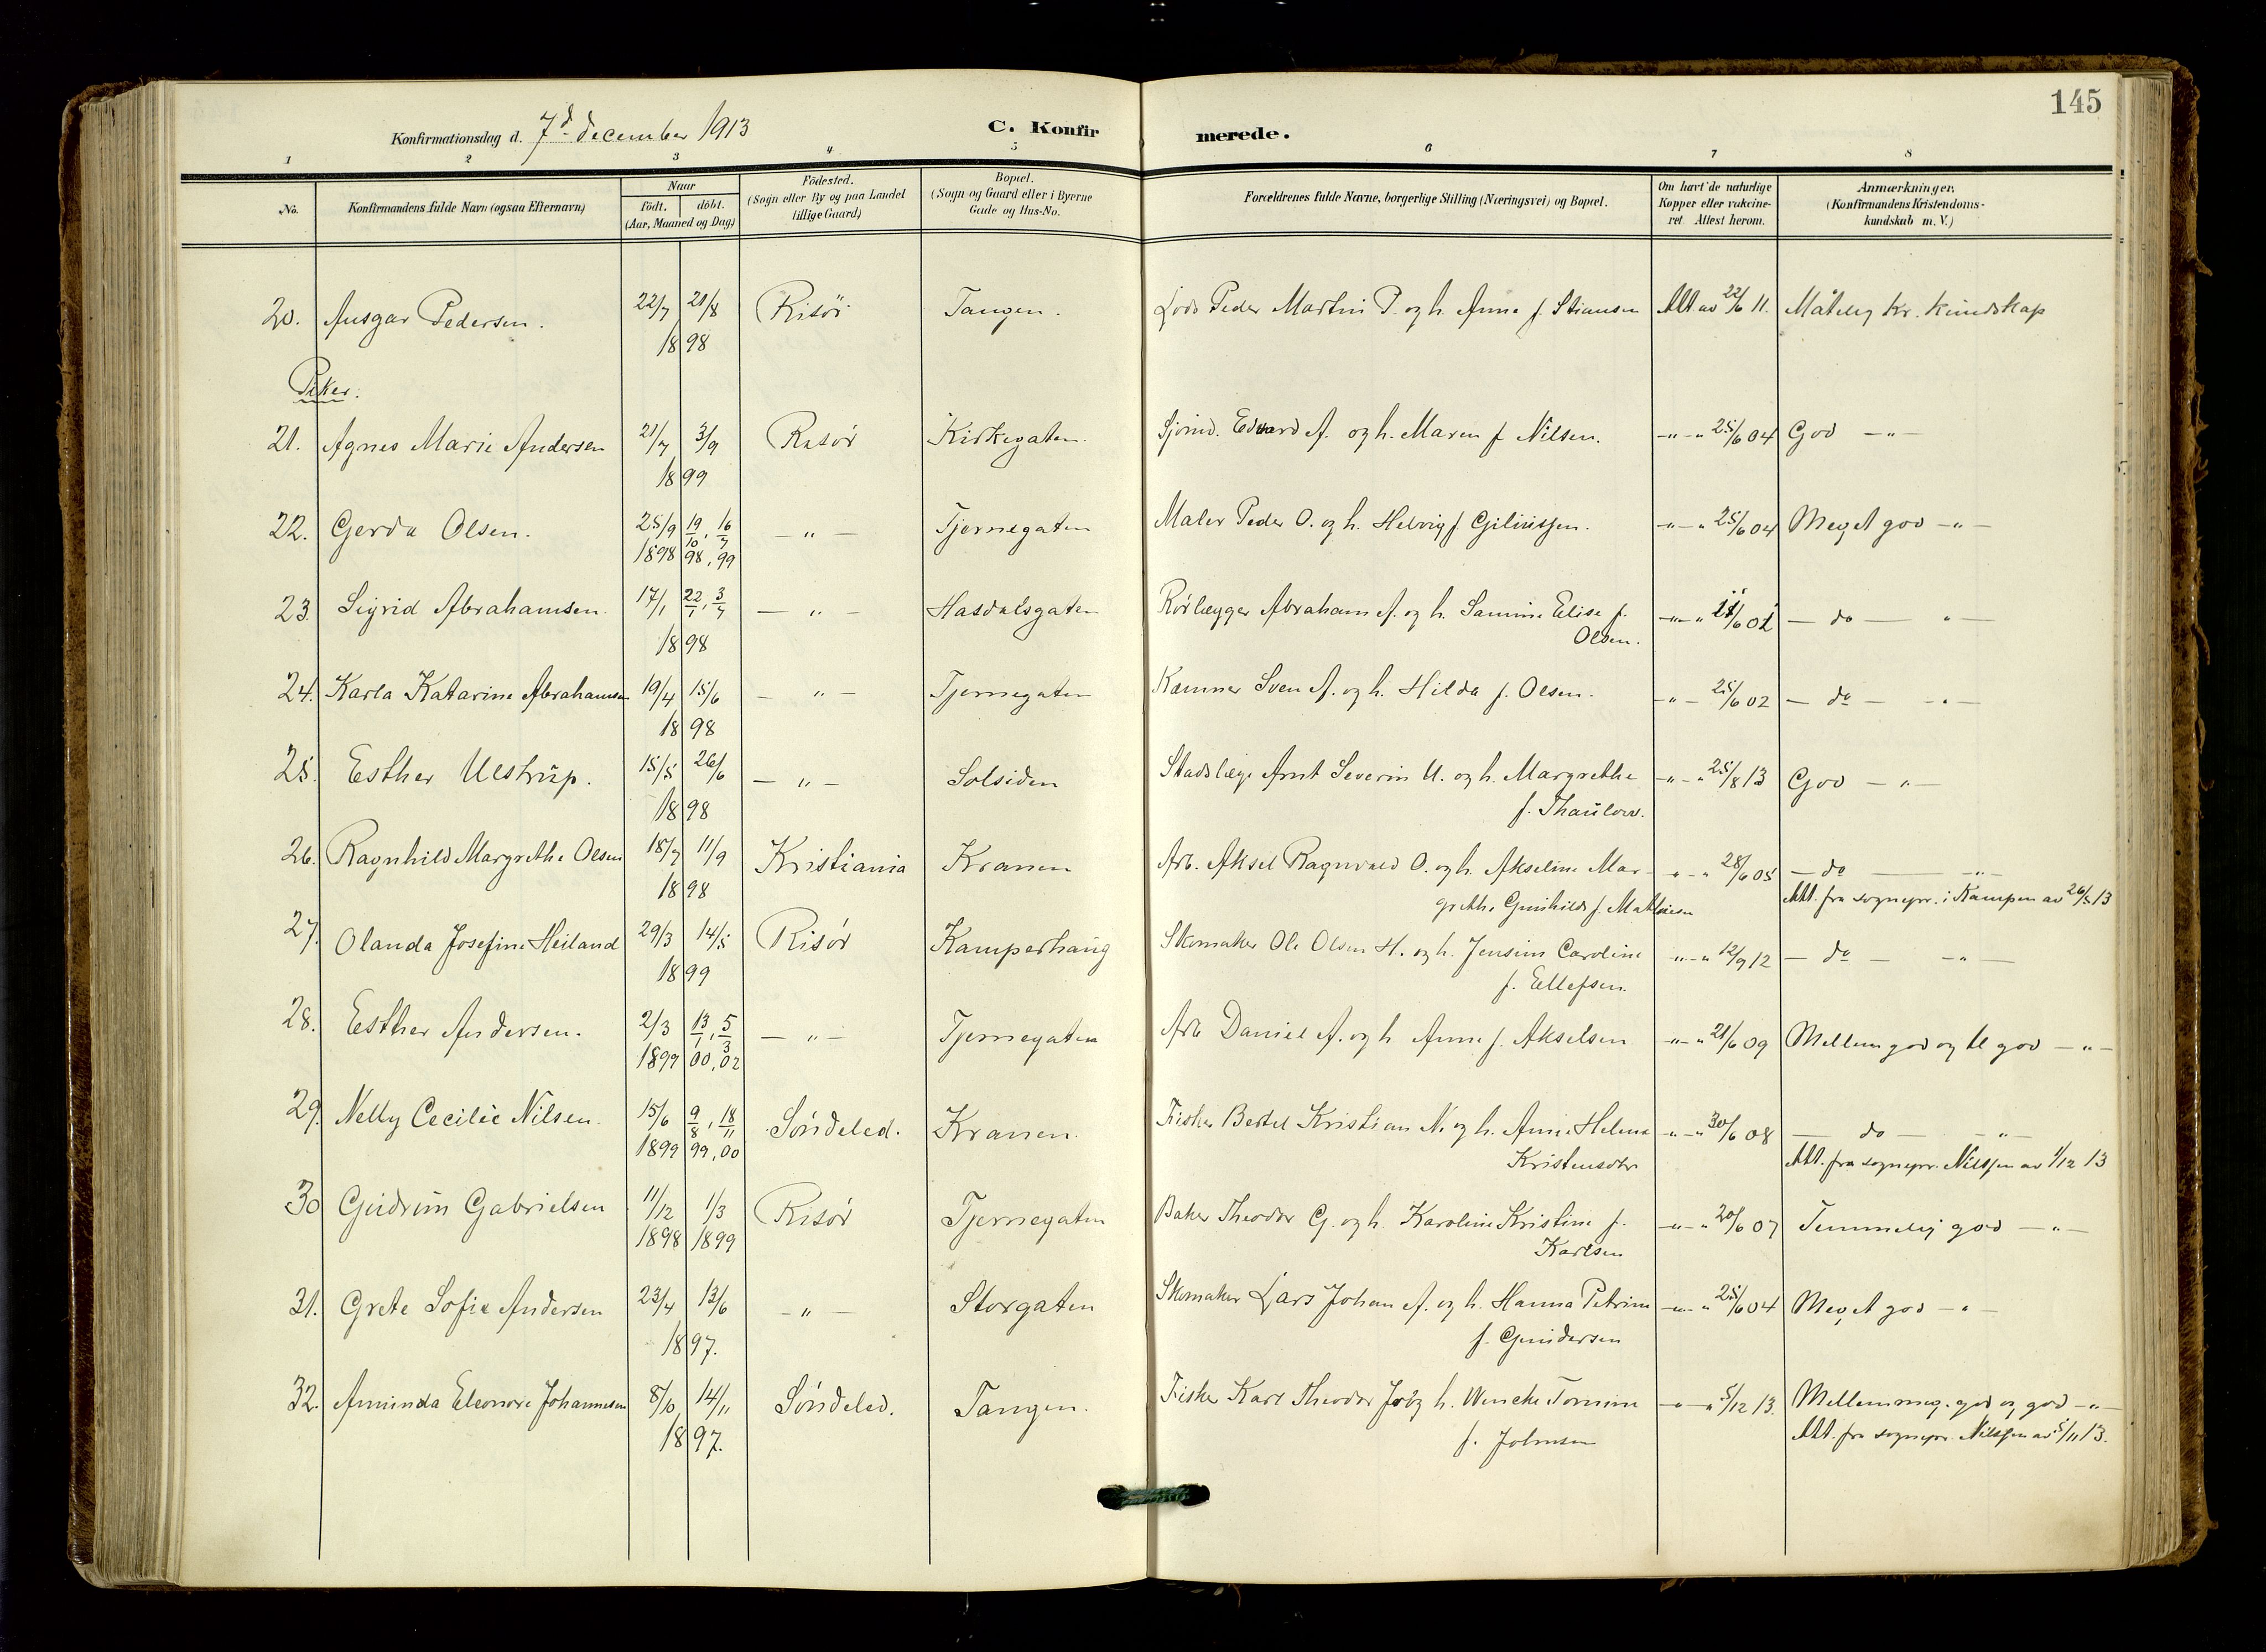 145
Konfirmationsdag d. 7d december 1913 C. Konfirmerede.
1 2 3 4 5 6 7 8
No. Konfirmandens fulde Navn (ogsaa Efternavn) Naar födt. döbt. (Aar, Maaned og Dag) Födested. (Sogn eller By og paa Landet tillige Gaard) Bopæl. (Sogn og Gaard eller i Byerne Gade og Hus-No. Forældrenes fulde Navne, borgerlige Stilling (Næringsvei) og Bopæl. Om havt de naturlige Kopper eller vakcineret Attest herom. Anmærkninger. (Konfirmandens Kristendomskundskab m. V.)
20. Ansgar Pedersen. 22/7 21/8 Risör Tangen. Lods Peder Martin P. og h. Anna f. Stiansen Att. av 22/6 11. Måtelig kr. kundskap
1898
Piker.
21. Agnes Marie Andersen 21/7 3/9 Risör Kirkegaten. Sjömd. Edvard A. og h. Maren f. Nilsen. -"- " 25/6 04 God -"-
1899
22. Gerda Olsen. 25/9 19/10, 16/7 -"- Tjernegaten Maler Peder O. og h. Helvig f. -"- " 25/6 04 Meget god -"-
1898 98, 99
23. Sigrid Abrahamsen. 17/1 22/1, 3/7 -"- Hasdalsgaten Rörlægger Abraham A. og h. Samine Elise f. -"- " - do - " -
1898 Olsen.
24. Karla Katarine Abrahamsen 19/4 15/6 -"- Tjernegaten Kæmner Sven A. og h. Hilda f. Olsen. -"- 25/6 02 - do - -"-
1898
25. Esther Ulstrup. 15/5 26/6 -"- Solsiden Stadslæge Arnt Severin U. og h. Margrethe -"- " 25/8 13 God -"-
1898 f. Thaulow.
26. Ragnhild Margrethe Olsen 18/7 11/9 Kristiania Kranen Arb. Aksel Ragnvald O. og h. Akseline Mar- -"- " 28/6 05 - do - -"-
1898 grethe Gunhild f. Mathisen Att. fra sognepr. i Kampen av 26/5 13
27. Olanda Josefine Heiland 29/3 14/5 Risör Kamperhaug Skomaker Ole Olsen H. og h. Jensine Caroline -"- " 12/9 12 - do - -"-
1899 f. Ellefsen.
28. Esther Andersen. 2/3 13/1, 5/3 -"- Tjernegaten Arb Daniel A. og h. Anna f. Akselsen -"- " 21/6 09 Mellem god og tl god -"-
1899 00, 02
29. Nelly Cecilie Nilsen. 15/6 9/8, 18/11 Söndeled. Kranen. Fisker Bertel Kristian N. og h. Anne Helena -"- " 30/6 08 - do - -"-
1899 99, 00 Kristensdtr Att. fra sognepr. Nilssen av 1/12 13
30 Gudrun Gabrielsen 11/12 1/3 Risör Tjernegaten Baker Theodor G. og h. Karoline Kristine f. -"- " 20/6 07 Temmelig god -"-
1898 1899 Karlsen
31. Grete Sofie Andersen 23/4 13/6 -"- Storgaten Skomaker Lars Johan A. og h. Hanna Petrine -"- " 25/6 04 Meget god -"-
1897. f. Gundersen
32. Aminda Eleonore Johannesen 8/10 14/11 Söndeled. Tangen. Fisker Karl Theodor J. og h. Wencke Tomine -"- " 5/12 13. Mellem meg. god og god -"-
1897. f. Johnsen Att. fra sognepr. Nilssen av 5/11 13.